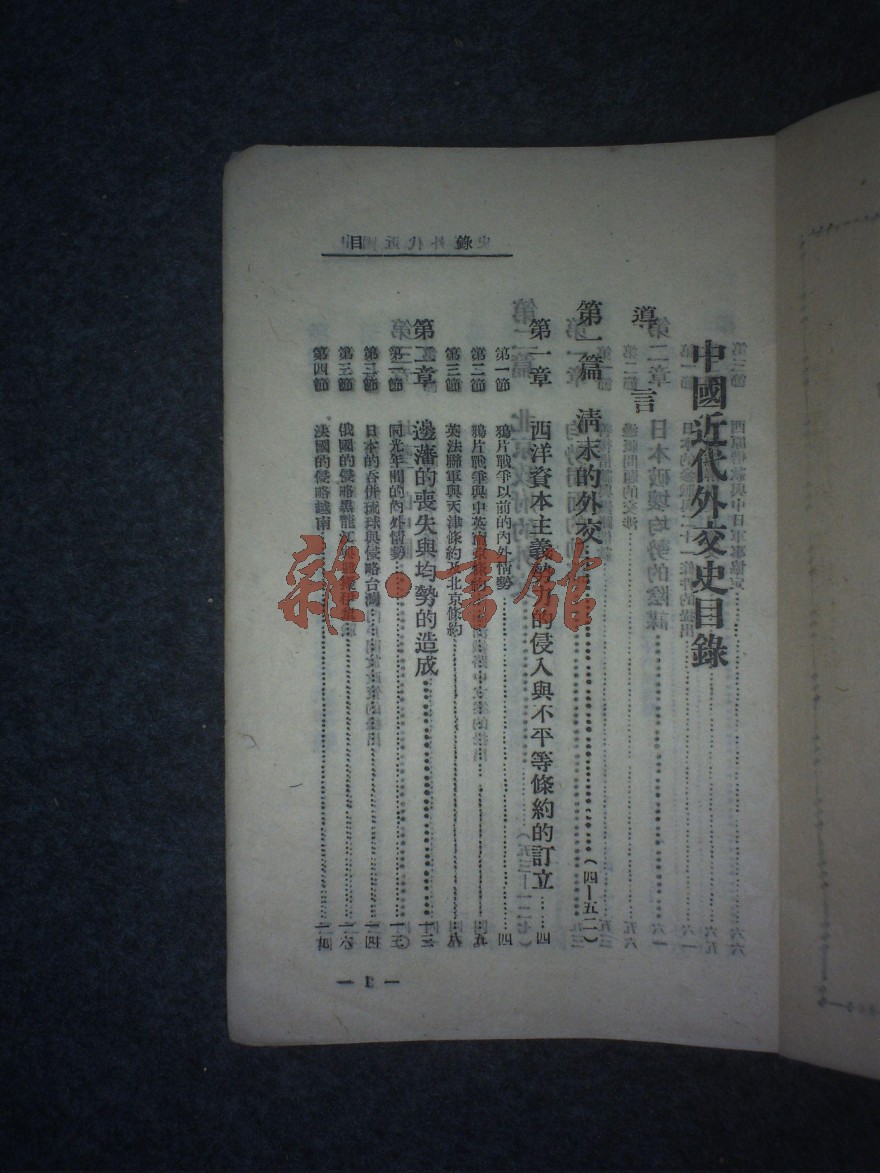 目錄
中國近代外交史目錄
導言
第一篇 清末的外交……(四—五二)
第一章 西洋資本主義勢力的侵入與不平等條約的訂立……四
第一節 鴉片戰爭以前的內外情勢……四
第二節 鴉片戰爭與中英南京條約……五
第三節 英法聯軍與天津條約及北京條約……八
第二章 邊藩的喪失與均勢的造成……一三
第一節 同光年間的內外情勢……一三
第二節 日本的吞併琉球與侵略台灣……一四
第三節 俄國的侵略黑龍江……一六
第四節 法國的侵略越南……一九
— 1 —
雜·書館